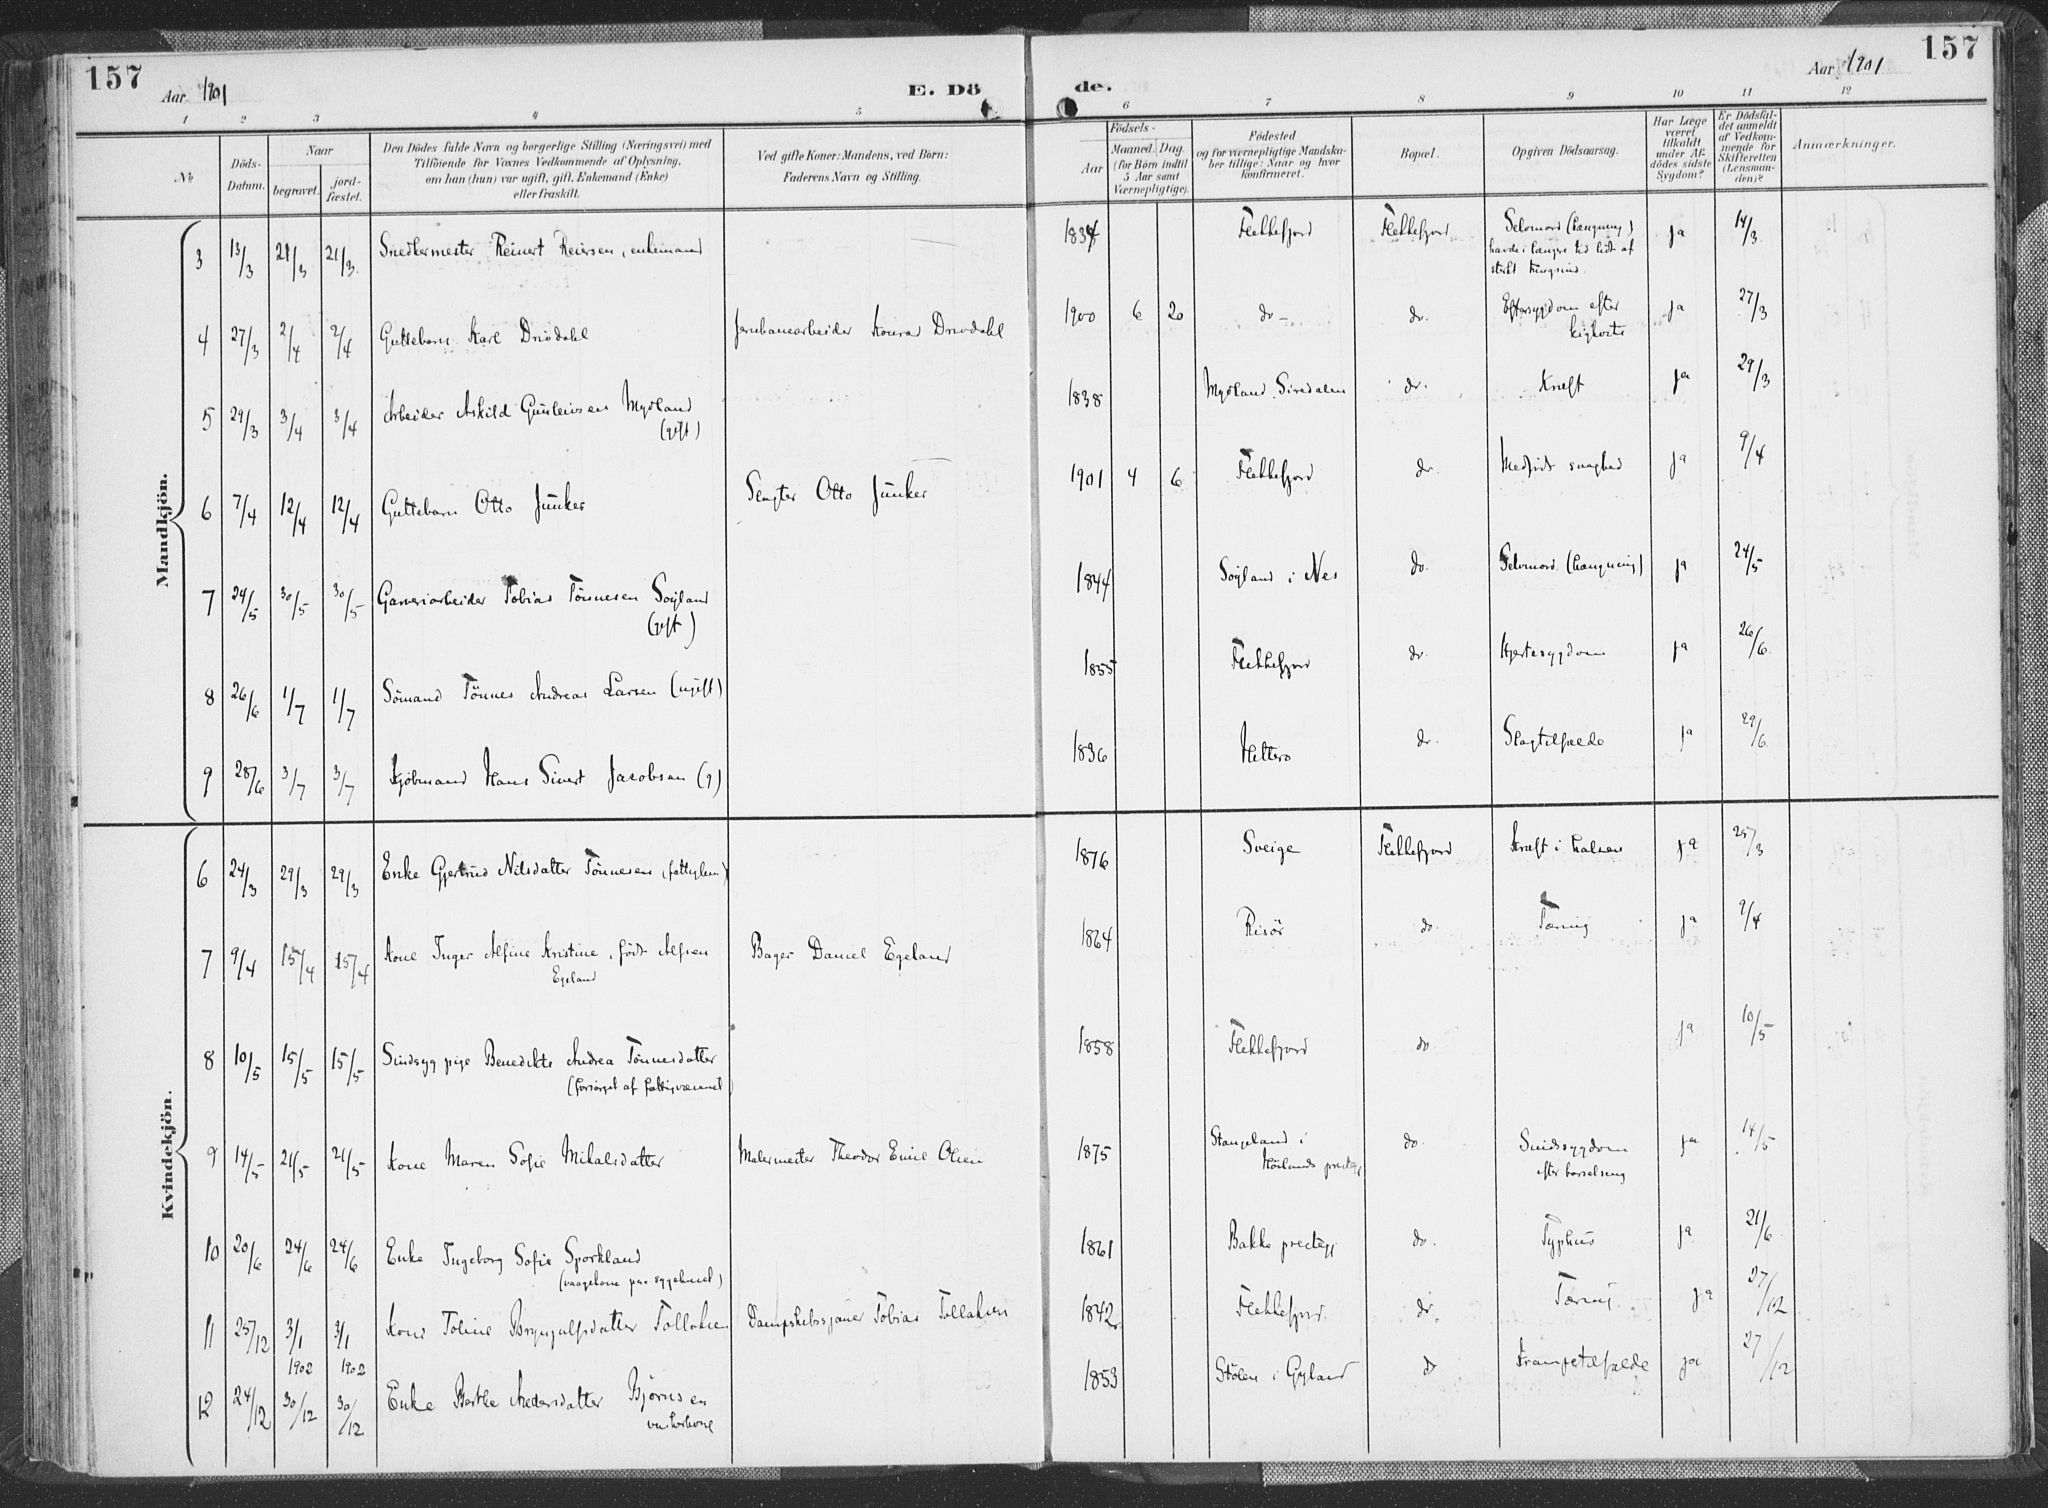 157
Aar 1901
E. Dö
de.
Aar 1901
157
1 2 3 4 5 6 7 8 9 10 11 12
No
Döds-Datum.
Naar
begravet.
jord-fæstet.
Den Dödes fulde Navn og borgerlige Stilling (Næringsvei) med
Tilföiende for Voxnes Vedkommende af Oplysning,
om han (hun) var ugift, gift, Enkemand (Enke)
eller fraskilt.
Ved gifte Koner: Mandens, ved Börn:
Faderens Navn og Stilling.
Födsels-
Aar
Maaned. Dag.
(for Börn indtil
5 Aar samt
Værnepligtige).
Födested
og for værnepligtige Mandska-
ber tillige: Naar og hvor
konfirmeret.
Bopæl.
Opgiven Dödsaarsag.
Har Læge
været
tilkaldt
under Af-
dödes sidste
Sygdom?
Er Dödsfal-
det anmeldt
af Vedkom-
mende for
Skifteretten
(Lensman-
den)?
Anmærkninger.
Mandkjön.
3 13/3 21/3 21/3 Snedkermester Reinert Reiersen, enkemand 1834 Flekkefjord Flekkefjord Selvmord (hængning) ja 14/3
havde i længre tid lidt af
sterkt tungsind.
4 27/3 2/4 2/4 Guttebarn Karl Drivdahl Jernbanearbeider Konrad Drivdahl 1900 6 20 do do. Eftersygdom efter ja 27/3
kighoste
5 29/3 3/4 3/4 Arbeider Askild Gunleivsen Mydland 1838 Mydland Siredalen do. Kræft ja 29/3
(gift)
6 7/4 12/4 12/4 Guttebarn Otto Junker Slagter Otto Junker 1901 4 6 Flekkefjord do. Medfödt svaghed ja 9/4
7 24/5 30/5 30/5 Garveriarbeider Tobias Tönnesen Söyland 1844 Söyland i Nes do. Selvmord (hængning) ja 24/5
(gift)
8 26/6 1/7 1/7 Sömand Tönnes Andreas Larsen (ugift) 1855 Flekkefjord do. Hjertesygdom ja 26/6
9 28/6 3/7 3/7 Kjöbmand Hans Sivert Jacobsen (g) 1836 Hitterö do. Slagtilfælde ja 29/6
Kvindekjön.
6 24/3 29/3 29/3 Enke Gjertrud Nilsdatter Tönnesen, fattiglem) 1876 Sveige Flekkefjord Kræft i halsen ja 25/3
7 9/4 15/4 15/4 Kone Inger Alfine Kristine, födt Alfsen Bager Daniel Egeland 1864 Risör do. Tæring ja 9/4
Egeland
8 10/5 15/5 15/5 Sindsyg pige Benedikte Andrea Tönnesdatter 1858 Flekkefjord do ja 10/5
(forsörget af fattigvæsenet)
9 14/5 21/5 21/5 Kone Maren Sofie Mikalsdatter Malermester Theodor Emil Olsen 1875 Stangeland i do. Sindssygdom ja 14/5
Hölands prestegj efter barselseng
10 20/6 24/6 24/6 Enke Ingeborg Sofie Sporkland 1861 Bakke prestegj. do. Typhus ja 21/6
(vaagekone paa sygehuset)
11 25/12 3/1 3/1 Kone Toline Brynjulfsdatter Tollaksen Dampskibssjauer Tobias Tollaksen 1842 Flekkefjord do. Tæring ja 27/12
1902 1902
12 24/12 30/12 30/12 Enke Berthe Andersdatter Björnsen 1853 Stölen i Gyland do Krampetilfælde ja 27/12
vaskekone